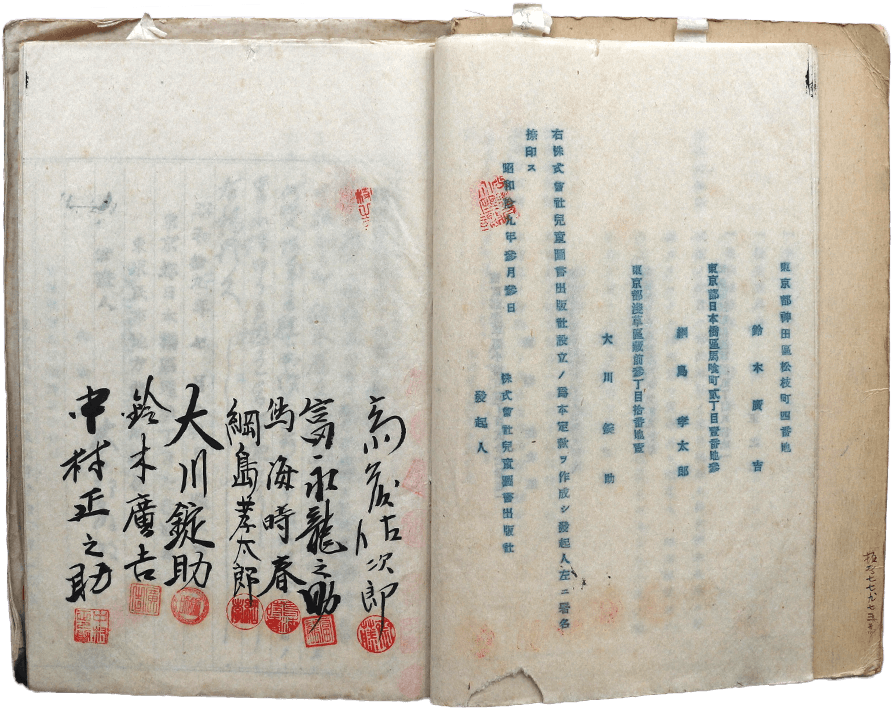 東京都神田區松枝町四番地
鈴木廣吉
東京都日本橋區馬喰町貳丁目壹番地參
綱島孝太郎
東京都淺草區藏前參丁目拾番地壹
大川錠助
右株式會社兒童圖書出版社設立ノ爲本定款ヲ作成シ發起人左ニ署名
捺印ス
昭和拾九年參月參日
株式會社兒童圖書出版社
發起人
次郎
富永龍之助
鳥海時春
綱島孝太郎
大川錠助
鈴木廣吉
中村正之助